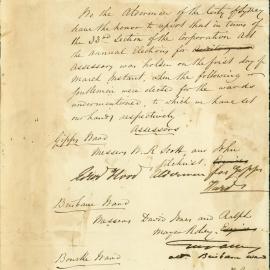 We the Aldermen of the City of Sydney
have the honor to report that in terms of
the 33rd Section of the Corporation Act
the annual Elections for
assessors was holden on the first day of
March Instant, when the following
Gentlemen were elected for the wards
undermentioned, to which we have set
our hands respectively
Assessors
Gipps Ward
Messrs W. R. Scott and John
Gilchrist
Alderman for Gipps
Ward
Brisbane Ward
Messrs David Jones and Ralph
Mayer
Brisbane Ward
Bourke Ward